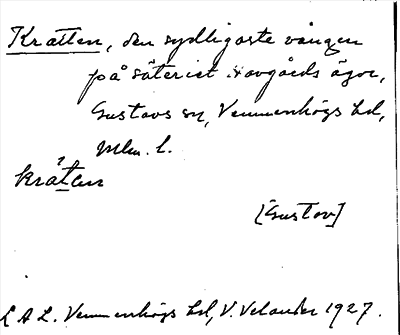 Kratten, den sydligaste vången
på säteriet Havgårds ägor,
Gustavs sn, Vemmenhögs hd,
Mlm. l.
kråten
[Gustov]
L A L. Vemmenhögs hd, V. Velander 1927.